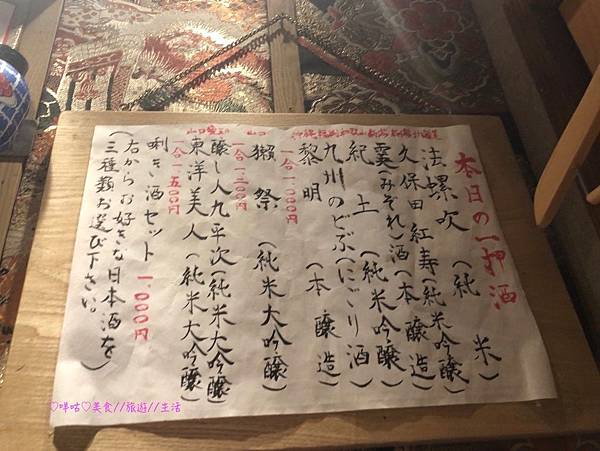 本日の一押酒
法螺吹（純米）
久保田紅寿（純米吟醸）
霙（みぞれ）酒（本醸造）
紀土（純米吟醸）
九州のどぶ（にごり酒）
黎明（本醸造）
一合一、〇〇〇円
獺祭（純米大吟醸）
一合一、三〇〇円
醸し人九平次（純米大吟醸）
東洋美人（純米大吟醸）
一合一、五〇〇円
唎き酒セット 一、〇〇〇円
（右からお好きな日本酒を
三種類お選び下さい。）
♡咩咕♡美食//旅遊//生活